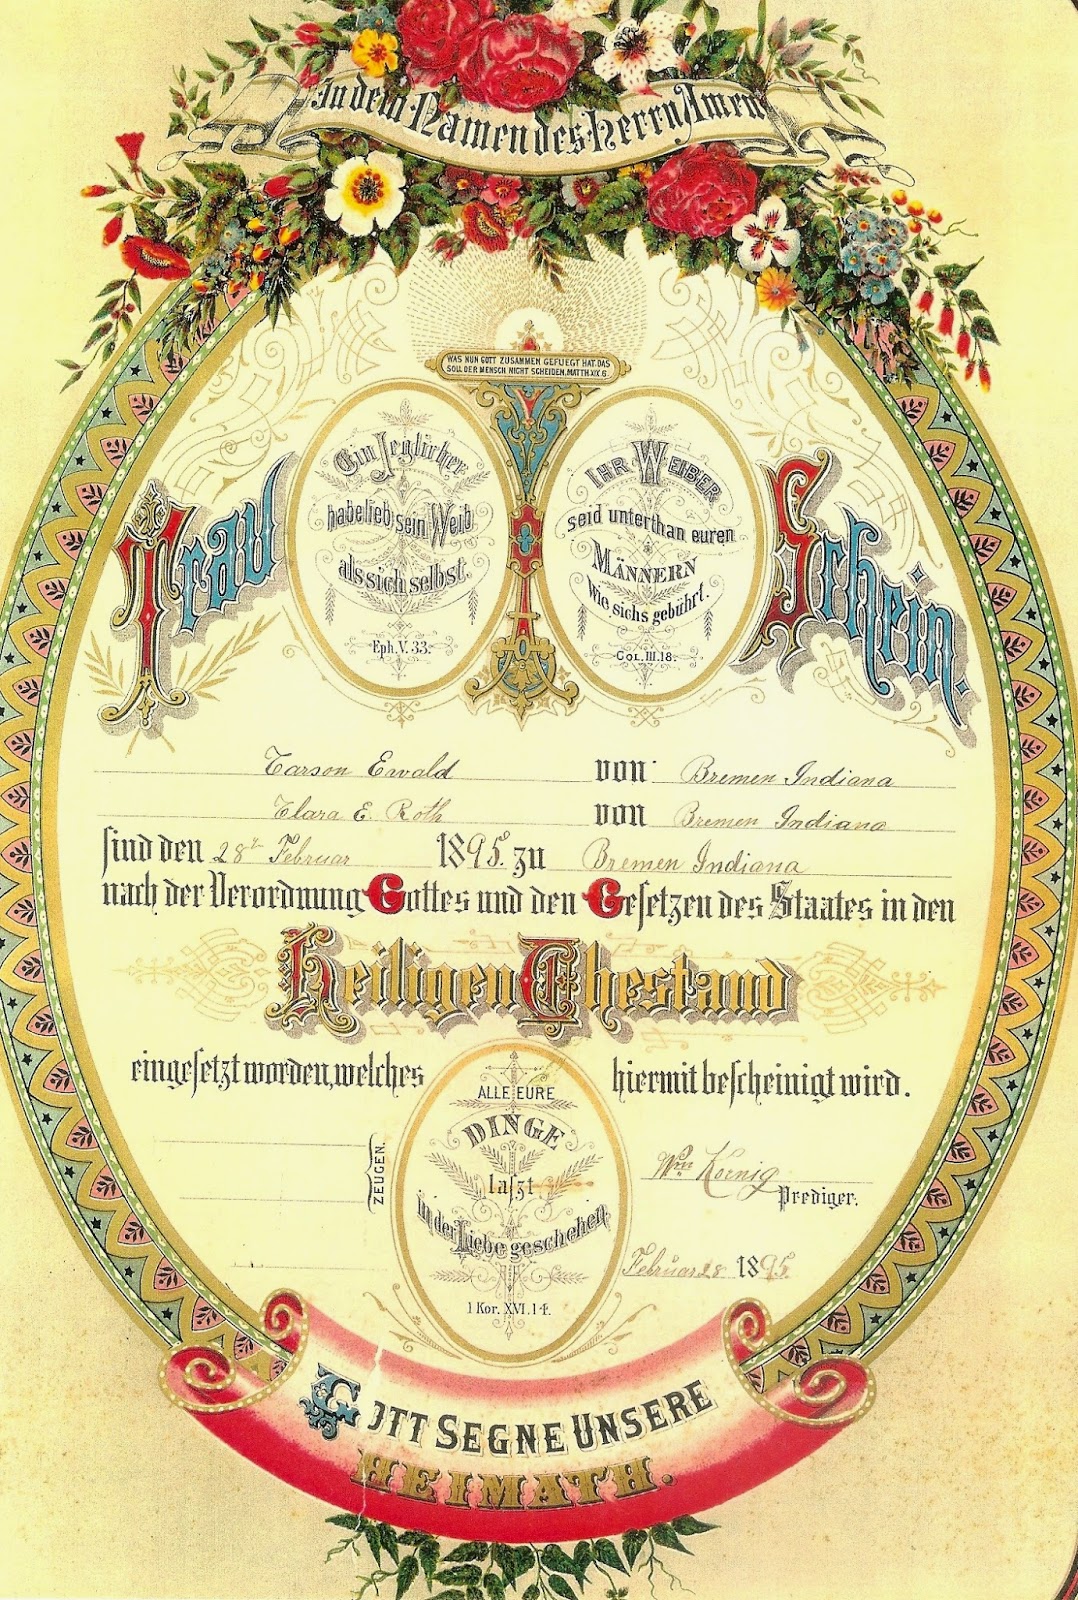 In dem Namen des Herrn Amen
WAS NUN GOTT ZUSAMMEN GEFUEGT HAT, DAS
SOLL DER MENSCH NICHT SCHEIDEN. MATTH. XIX. 6.
Trau Schein.
Ein Jeglicher
habe lieb sein Weib
als sich selbst.
Eph. V. 33.
IHR WEIBER
seid unterthan euren
MÄNNERN
Wie sichs gebührt.
COL. III. 18.
Carson Ewald von Bremen Indiana
Clara E. Roth von Bremen Indiana
sind den 28ten Februar 1895. zu Bremen Indiana
nach der Verordnung Gottes und den Gesetzen des Staates in den
Heiligen Ehestand
eingesetzt worden, welches hiermit bescheinigt wird.
ALLE EURE
DINGE
laszt
in der Liebe geschehen
1 Kor. XVI. 14.
ZEUGEN.
Wm Koenig
Prediger.
Februar 28 1895.
GOTT SEGNE UNSERE
HEIMATH.